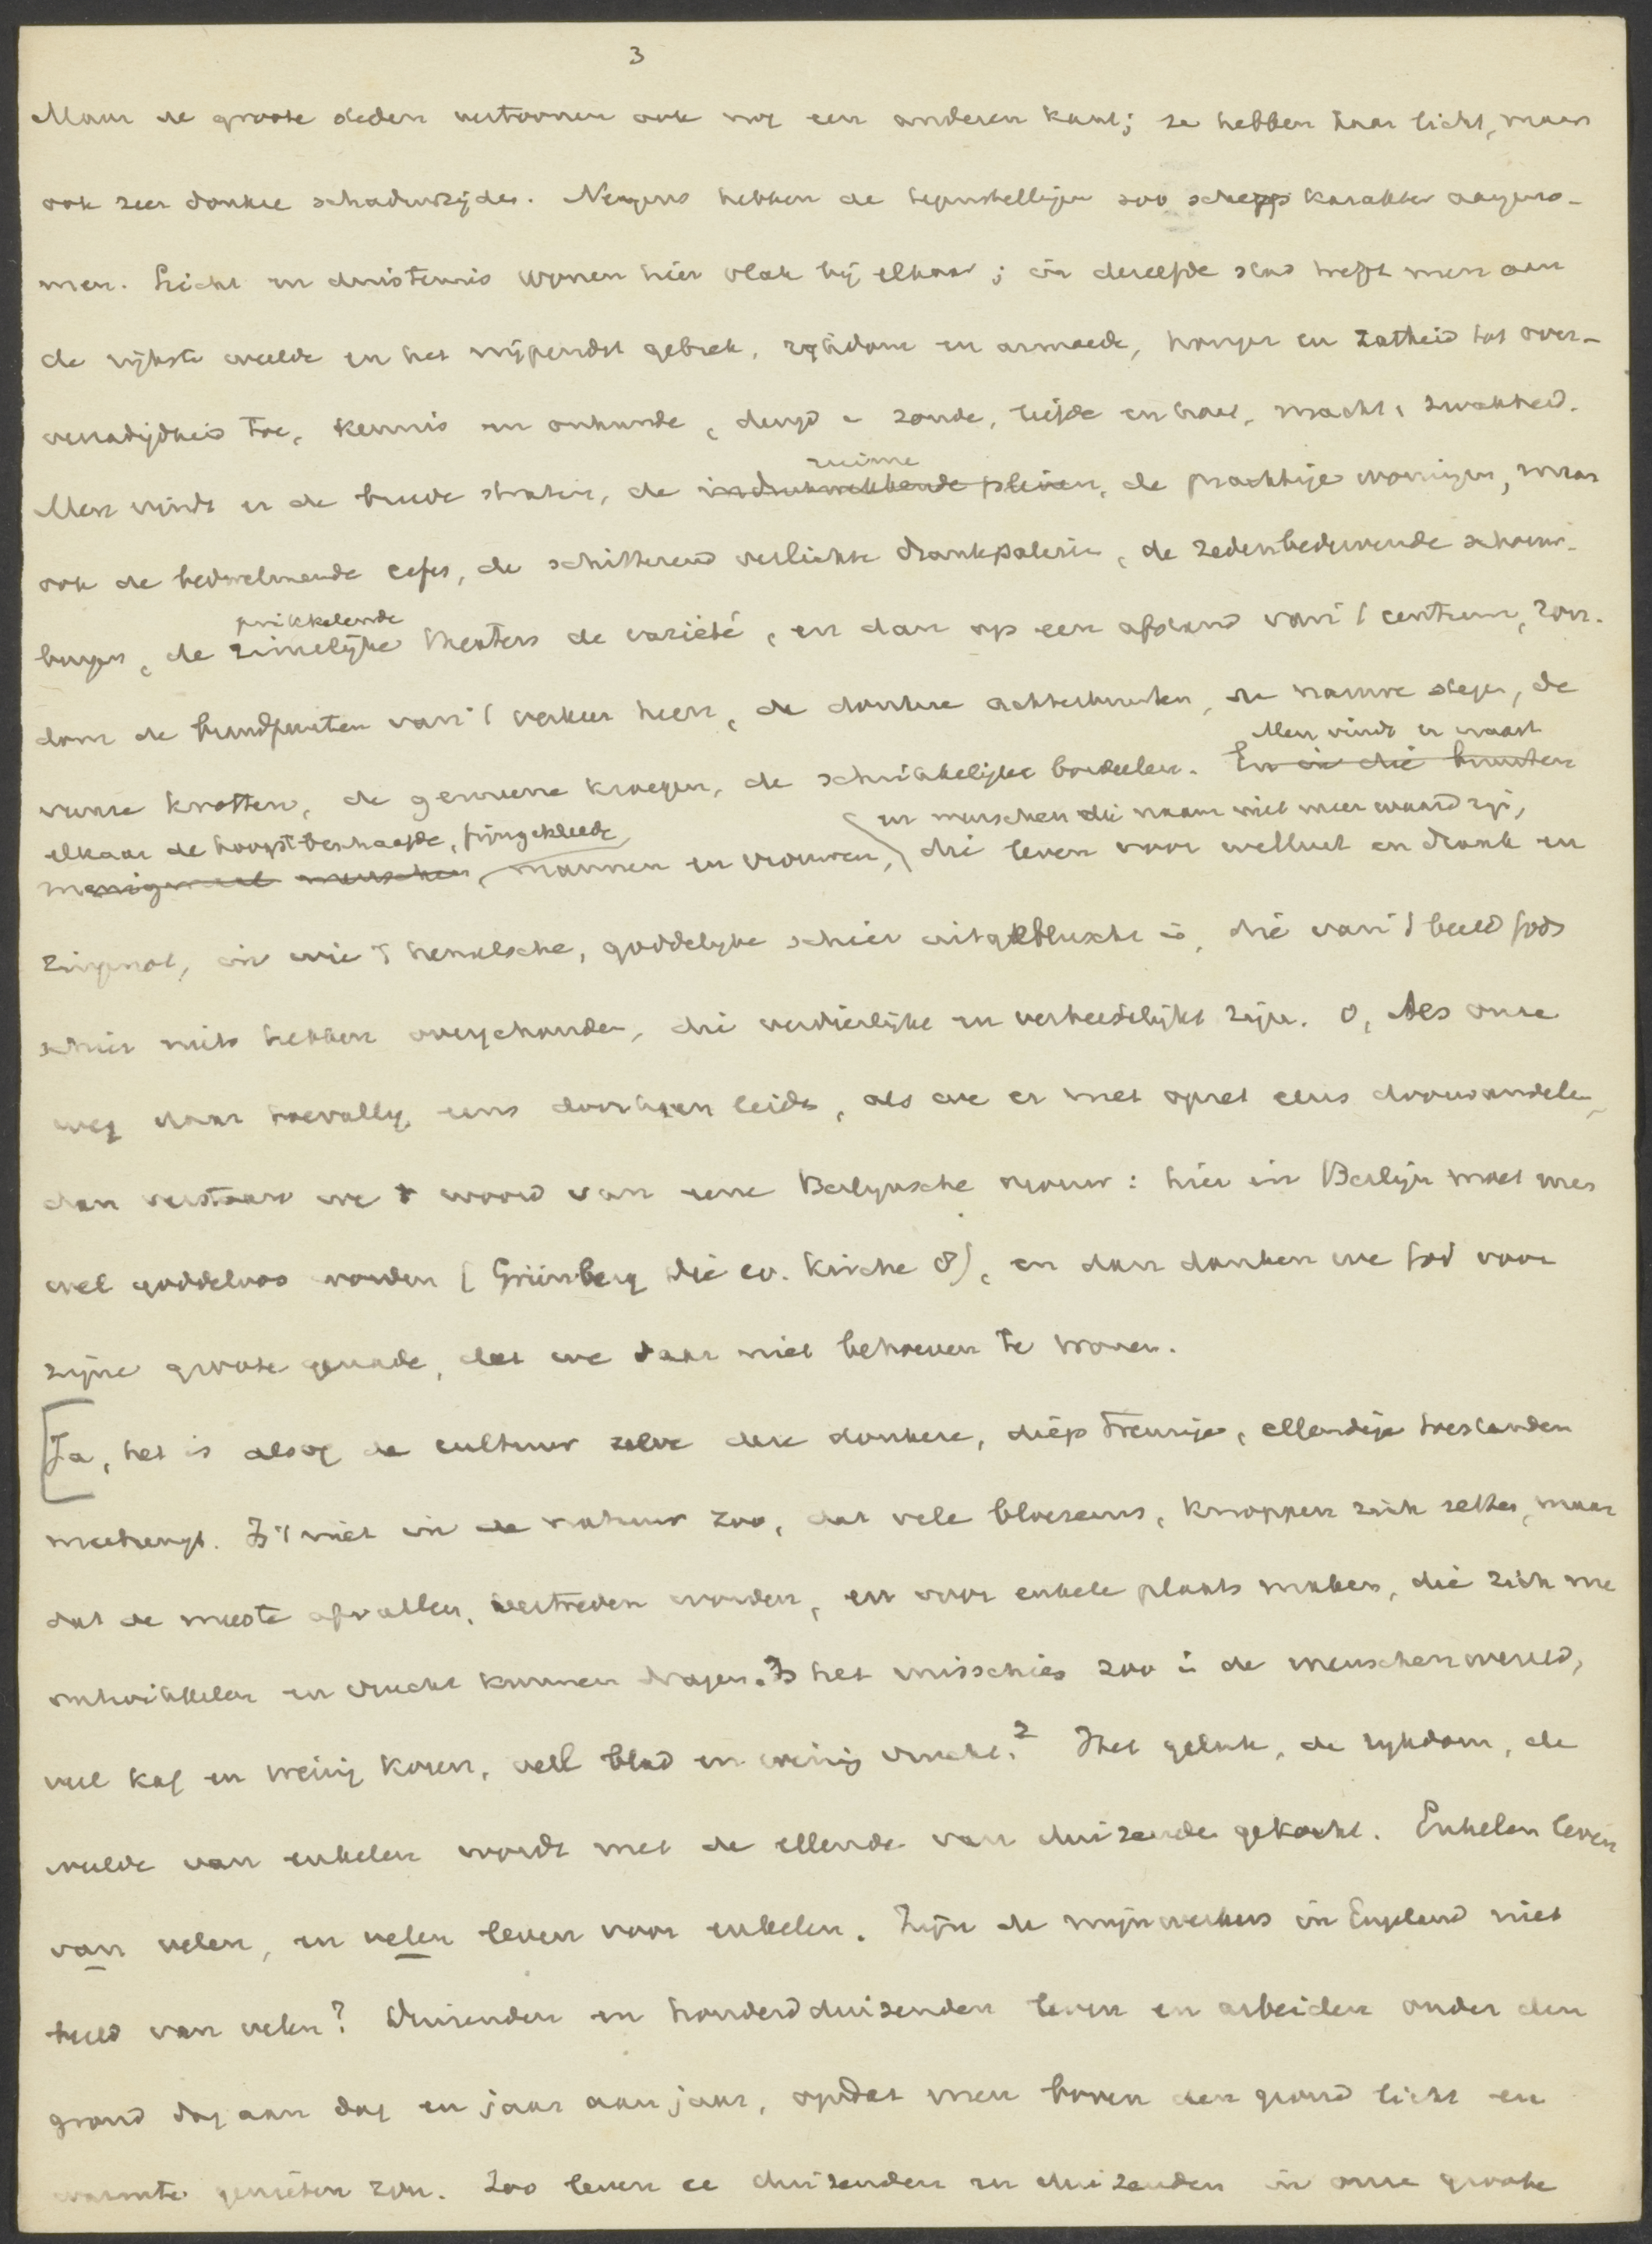 3
Maar de groote steden vertoonen ook nog een anderen kant; ze hebben haar licht, maar
ook zeer donkre schaduwzijden. Nergens hebben de tegenstellingen zoo scherp karakter aangeno-
men. Licht en duisternis wonen hier vlak bij elkaar; in dezelfde stad treft men aan
de rijkste weelde en het nijpendst gebrek, rijkdom en armoede, honger en zatheid tot over-
verzadigdheid toe, kennis en onkunde, deugd en zonde, liefde en haat, macht en zwakheid.
ruime
Men vindt er de breede straten, de indrukwekkende pleinen, de prachtige woningen, maar
ook de bedwelmende cafes, de schitterend verlichte drankpaleizen, de zedenbedervende schouw-
prikkelende
burgen, de zinnelijke theaters de variété, en dan op een afstand van 't centrum, ron-
dom de brandpunten van 't verkeer heen, de donkere achterbuurten, de nauwe stegen, de
Men vindt er naast
vunze krotten, de gemeene kroegen, de schrikkelijke bordeelen. En in die buurten
elkaar de hoogst beschaafde, fijngekleede en menschen die naam niet meer waard zijn,
menigmaal menschen, mannen en vrouwen, die leven voor wellust en drank en
zingenot, in wie 't hemelsche, goddelijke schier uitgebluscht is, die van 't beeld Gods
schier niets hebben overgehouden, die verdierlijkt en verbeestelijkt zijn. O, Als onze
weg daar toevallig eens doorheen leidt, als we er met opzet eens doorwandelen,
dan verstaan we 't woord van eene Berlijnsche vrouw: hier in Berlijn moet men
wel goddeloos worden (Grünberg die ev. Kirche 8), en dan danken we God voor
zijne groote genade, dat we daar niet behoeven te wonen.
[Ja, het is alsof de cultuur zelve deze donkere, diep treurige, ellendige toestanden
meebrengt. Is 't niet in de natuur zoo, dat vele bloesems, knoppen zich zetten, maar
dat de meeste afvallen, vertreden worden, en voor enkele plaats maken, die zich
ontwikkelen en vrucht kunnen dragen. Is het misschien zoo in de menschenwereld,
veel kaf en weinig koren, veel blad en weinig vrucht? Het geluk, de rijkdom, de
weelde van enkelen wordt met de ellende van duizenden gekocht. Enkelen leven
van velen, en velen leven voor enkelen. Zijn de mijnwerkers in Engeland niet
beeld van velen? Duizenden en honderdduizenden leven en arbeiden onder den
grond dag aan dag en jaar aan jaar, opdat men boven den grond licht en
warmte genieten zou. Zoo leven er duizenden en duizenden in onze groote